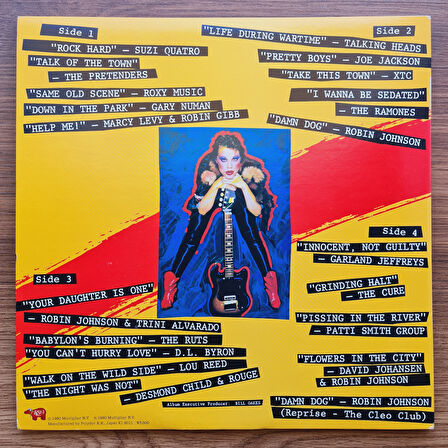 Side 1
"ROCK HARD" — SUZI QUATRO
"TALK OF THE TOWN"
— THE PRETENDERS
"SAME OLD SCENE" — ROXY MUSIC
"DOWN IN THE PARK" — GARY NUMAN
"HELP ME!" — MARCY LEVY & ROBIN GIBB
Side 2
"LIFE DURING WARTIME" — TALKING HEADS
"PRETTY BOYS" — JOE JACKSON
"TAKE THIS TOWN" — XTC
"I WANNA BE SEDATED"
— THE RAMONES
"DAMN DOG" — ROBIN JOHNSON
Side 3
"YOUR DAUGHTER IS ONE"
— ROBIN JOHNSON & TRINI ALVARADO
"BABYLON'S BURNING" — THE RUTS
"YOU CAN'T HURRY LOVE" — D.L. BYRON
"WALK ON THE WILD SIDE" — LOU REED
"THE NIGHT WAS NOT"
— DESMOND CHILD & ROUGE
Side 4
"INNOCENT, NOT GUILTY"
— GARLAND JEFFREYS
"GRINDING HALT"
— THE CURE
"PISSING IN THE RIVER"
— PATTI SMITH GROUP
"FLOWERS IN THE CITY"
— DAVID JOHANSEN
& ROBIN JOHNSON
"DAMN DOG" — ROBIN JOHNSON
(Reprise - The Cleo Club)
Album Executive Producer BILL OAKES
RSO
℗ 1980 Multiplier N.V. © 1980 Multiplier N.V.
Manufactured by Polydor K.K., Japan